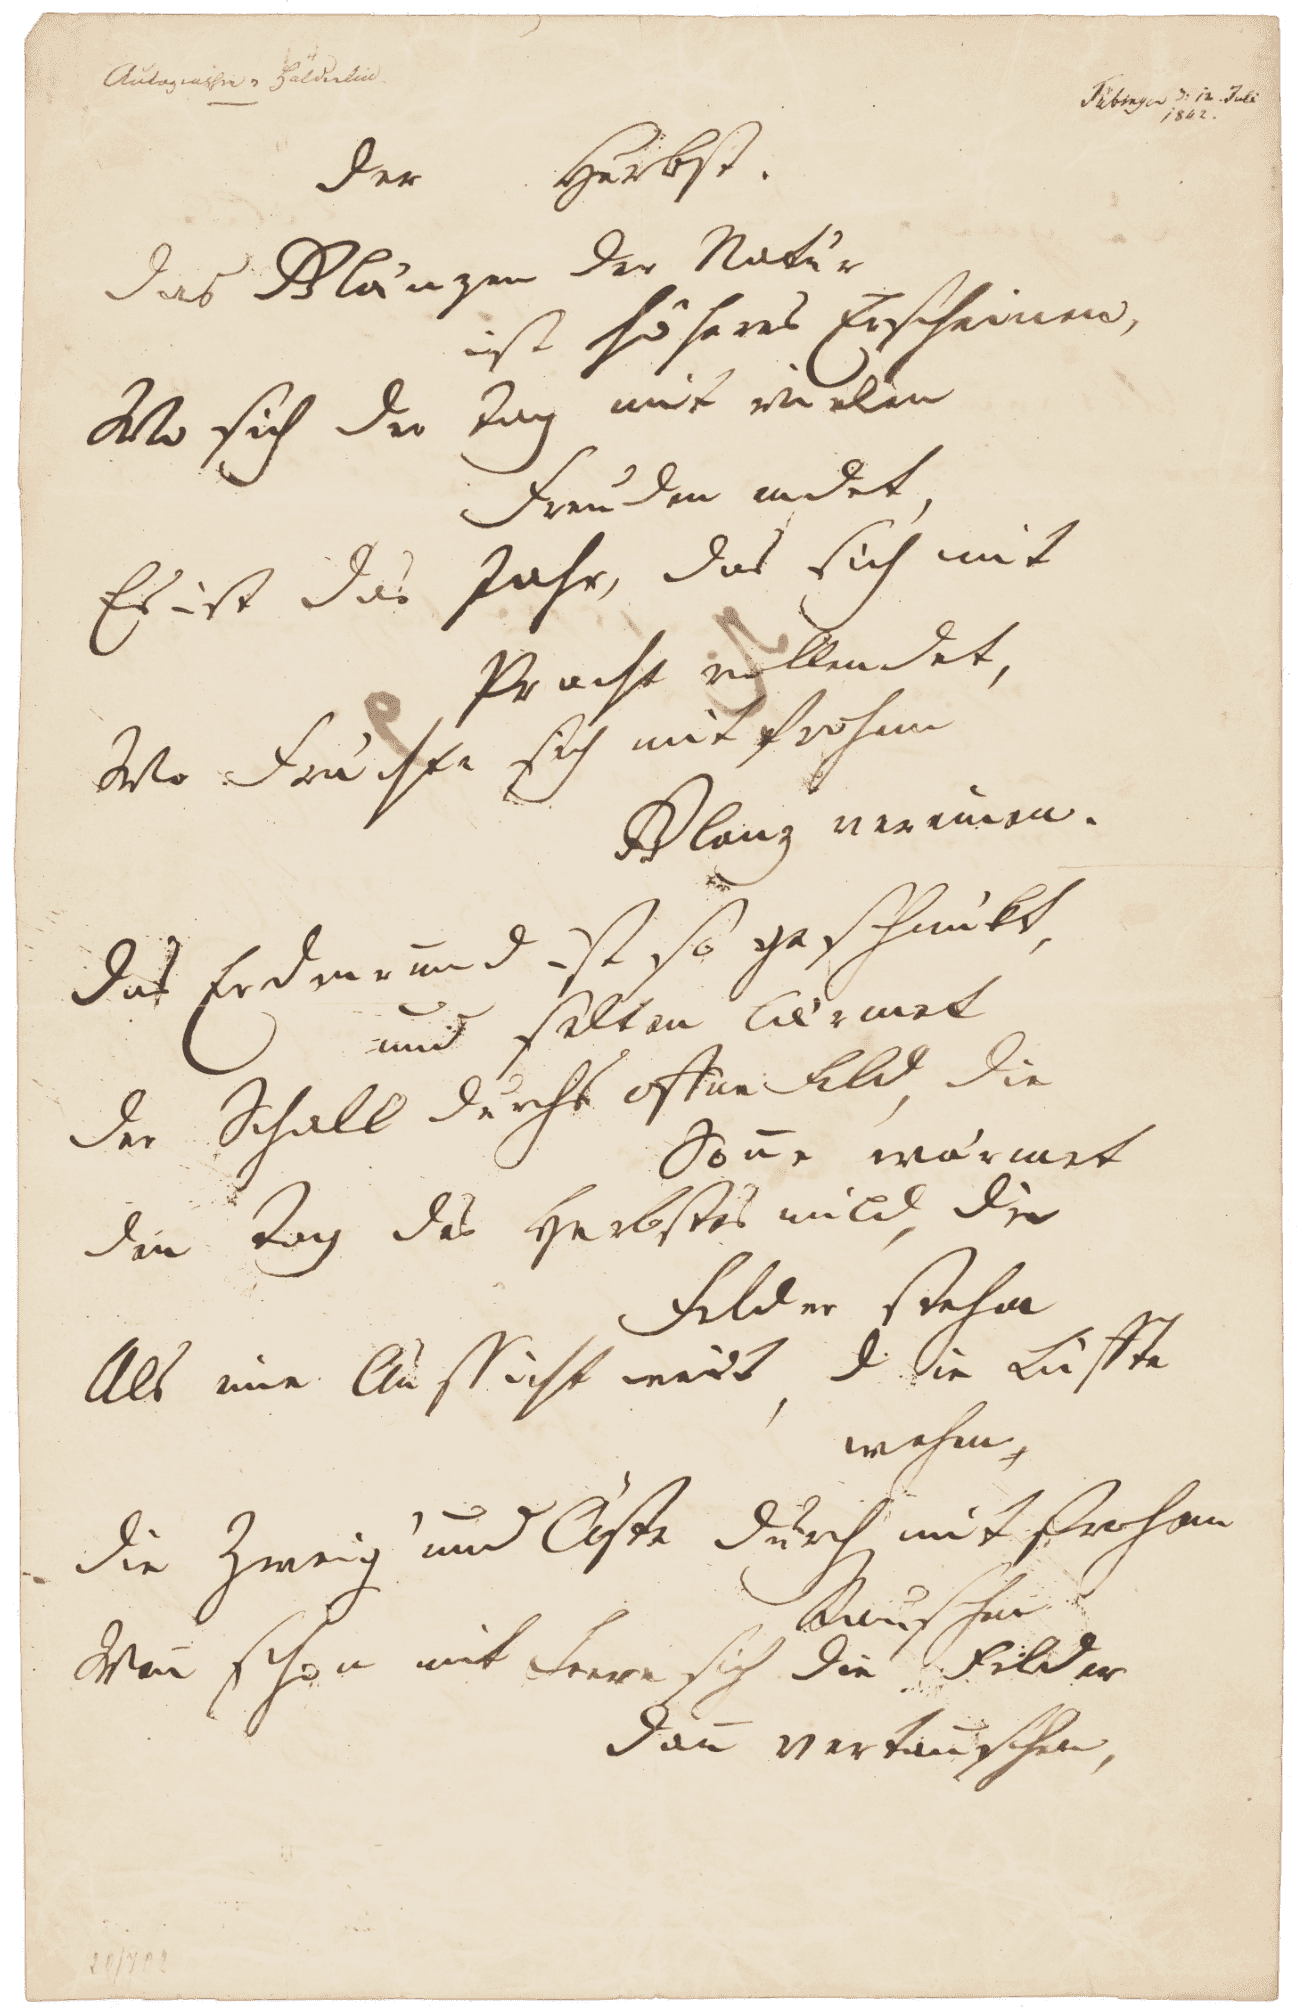 Autographie v Hölderlin.
Tübingen d. 12 Juli
1842.
Der Herbst.
Das Glänzen der Natur
ist höheres Erscheinen,
Wo sich der Tag mit vielen
Freuden endet,
Es ist das Jahr, das sich mit
Pracht vollendet,
Wo Früchte sich mit frohem
Glanz vereinen.
Das Erdenrund ist so geschmükt,
und selten lärmet
Der Schall durchs offne Feld, die
Soñe wärmet
Den Tag des Herbstes mild, die
Felder stehn
Als eine Aussicht weit, die Lüffte
wehn,
Die Zweig' und Äste durch mit frohem
Rauschen
Weñ schon mit Leere sich die Felder
dañ vertauschen,